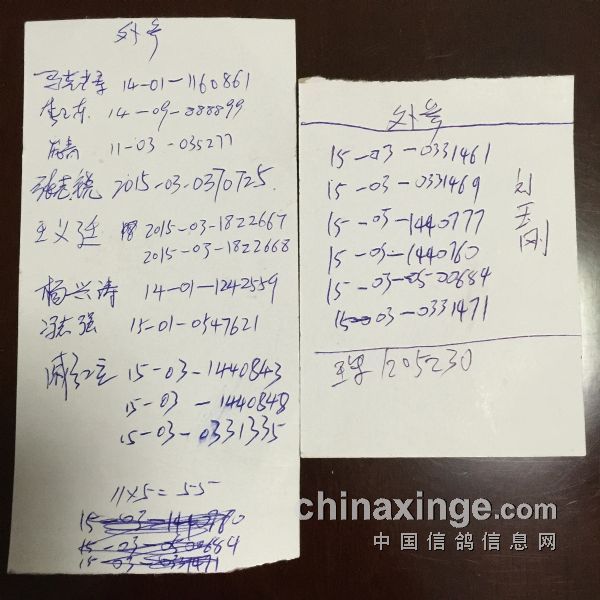 外号
14-01-1160861
14-09-888899
11-03-035277
2015-03-0370725.
王义廷 2015-03-1822667
2015-03-1822668
杨兴涛 14-01-1242559
冯志强 15-01-0547621
15-03-1440843
15-03-1440848
15-03-0331335
11X5=55
外号
15-03-0331461
15-03-0331469
15-03-1440777
15-03-1440760
15-03-0500684
03-0331471
刘玉刚
1205230
chinaxinge.com
中国信鸽信息网